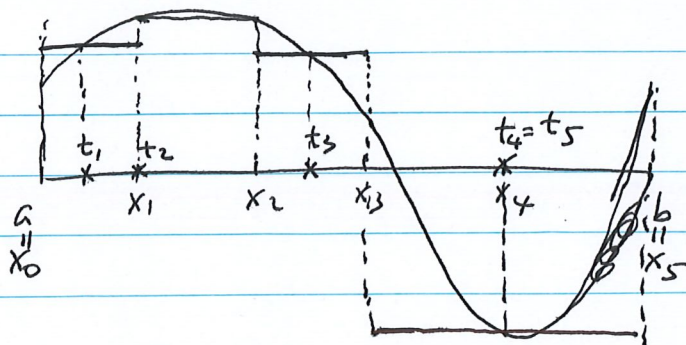 t₁ t₂ t₃ t₄ = t₅
a x₁ x₂ x₃ x₄ b
|| ||
x₀ x₅